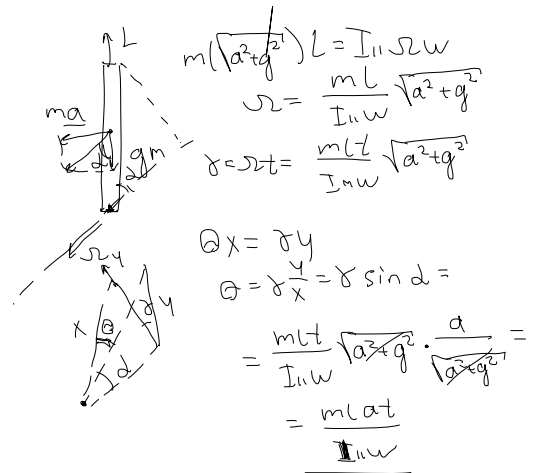 L
m(√a²+g²) l = I₁₁ Ω w
Ω = ml / I₁₁w √a²+g²
ma
α
gm
α
γ = Ωt = mlt / I₁₁w √a²+g²
Ω
y
x
θ
γ
y
α
θx = γy
θ = γ y/x = γ sin α =
= mlt / I₁₁w √a²+g² · a / √a²+g² =
= mlat / I₁₁w